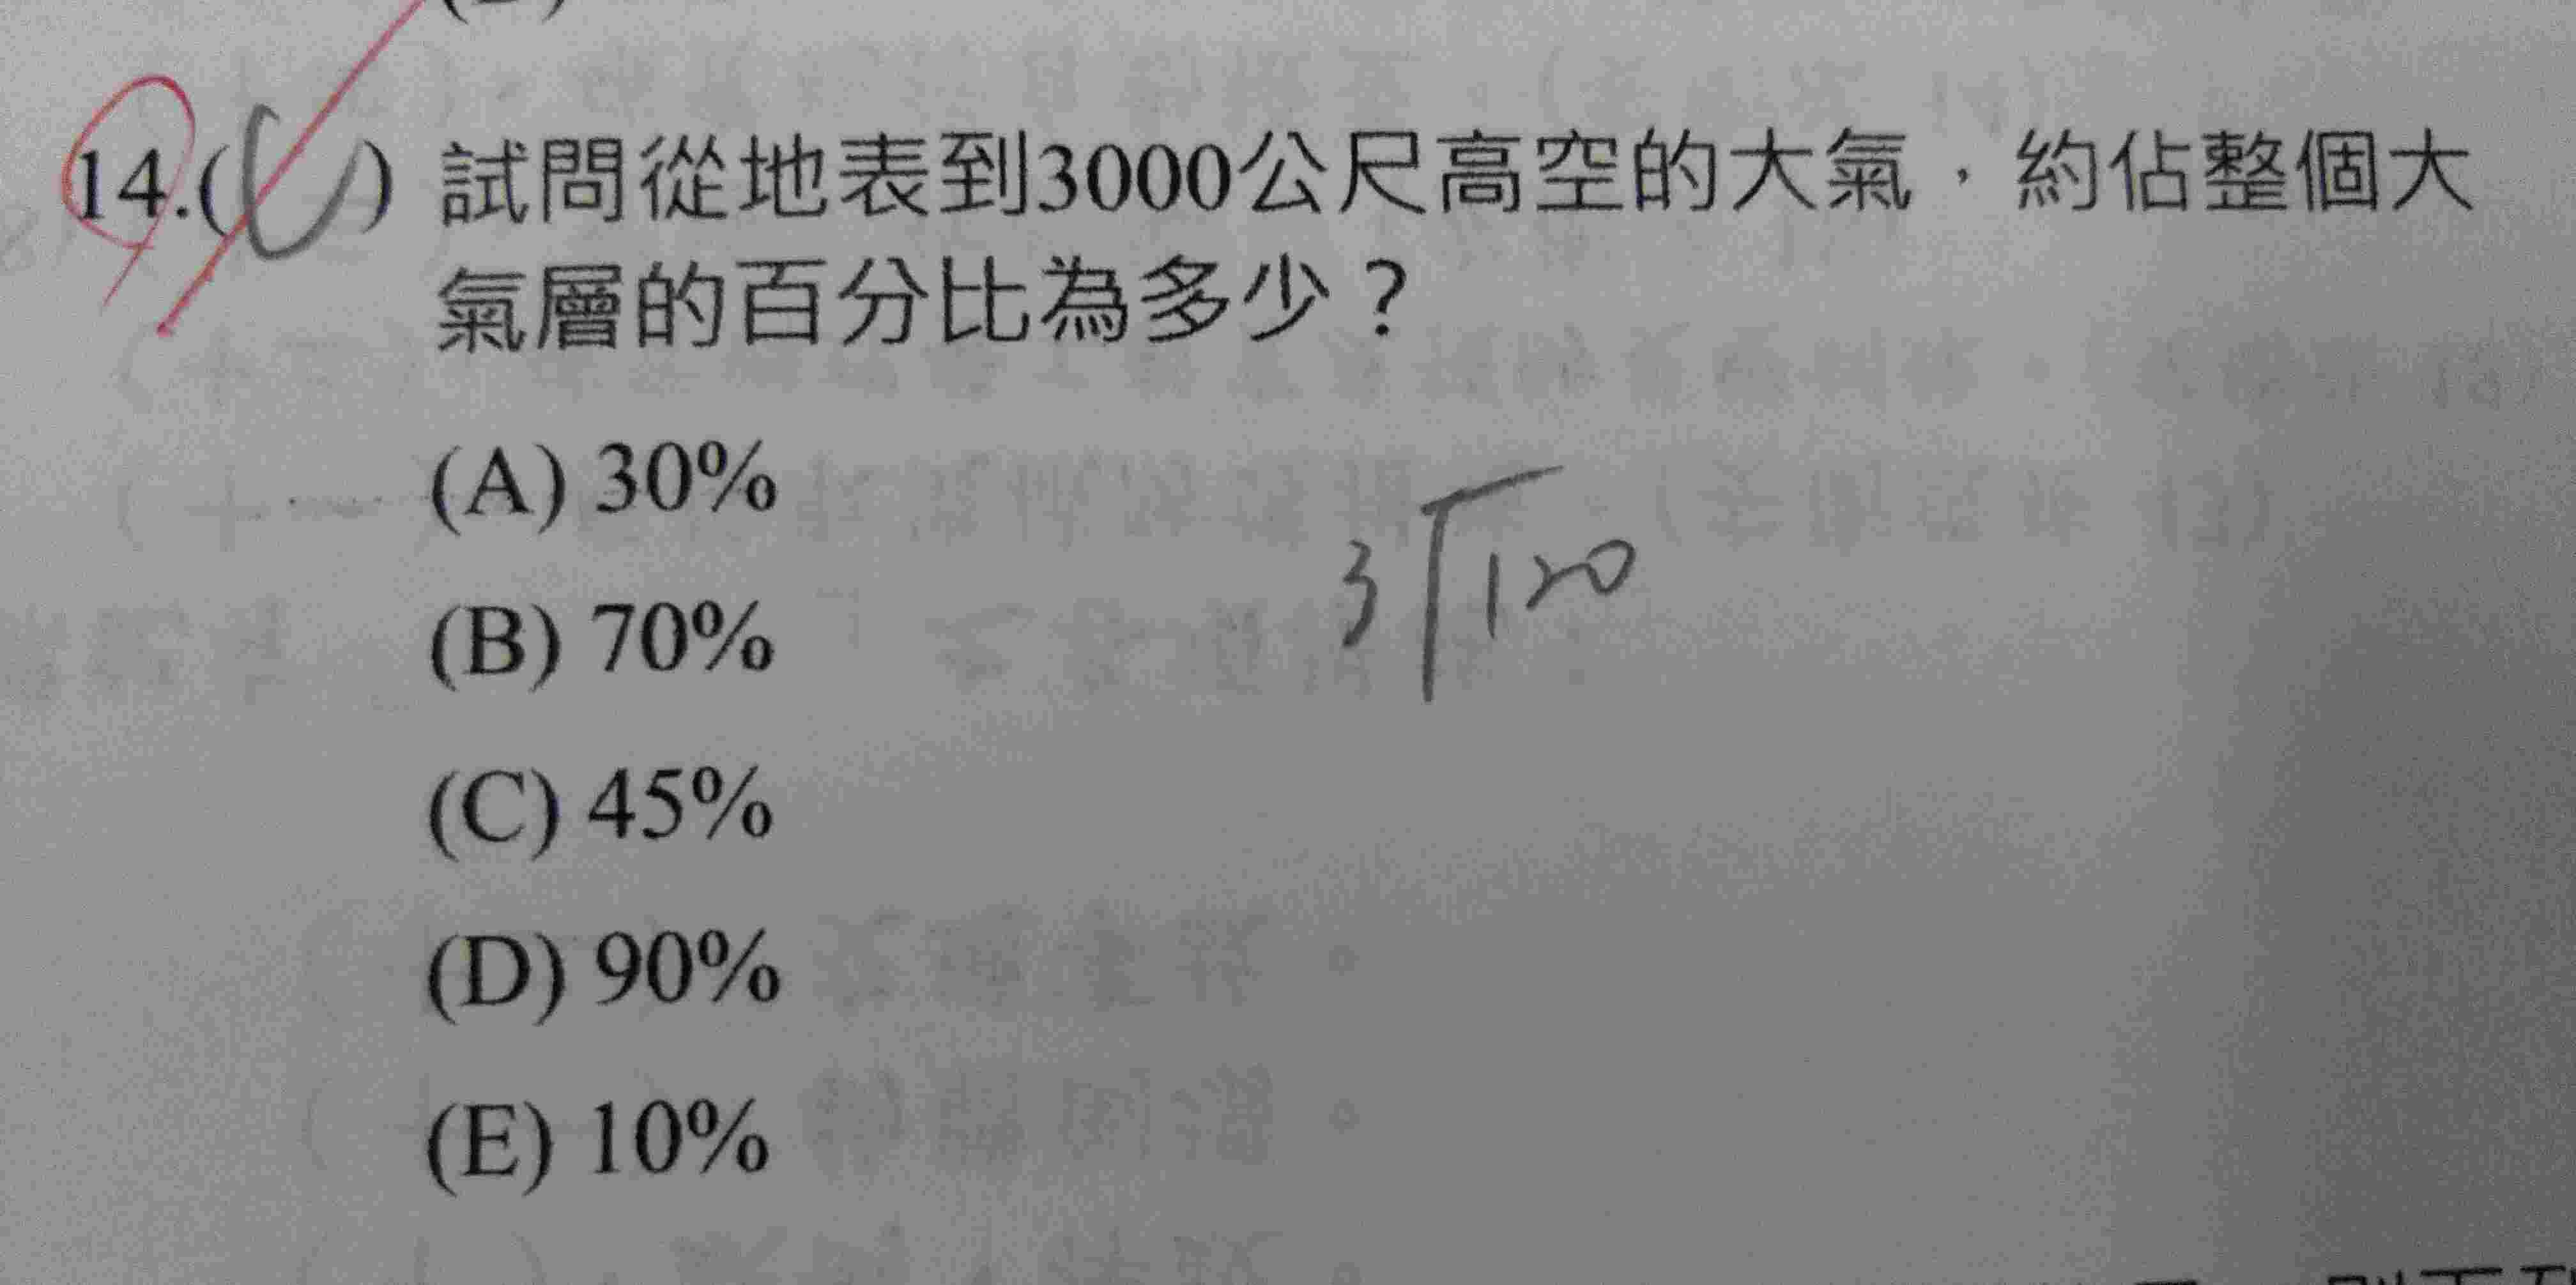 14.(C) 試問從地表到3000公尺高空的大氣，約佔整個大
氣層的百分比為多少？
(A) 30%
3 120
(B) 70%
(C) 45%
(D) 90%
(E) 10%